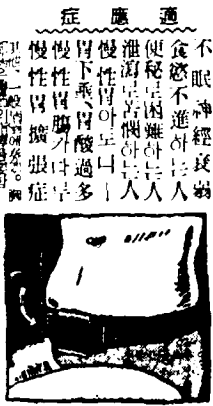 適應症
不眠神經衰弱
食慾不進하는人
便秘로困難하는人
泄瀉로苦悶하는人
慢性胃아도니ー
胃下垂、胃酸過多
慢性胃腸가다루
慢性胃擴張症
其他、一般胃腸